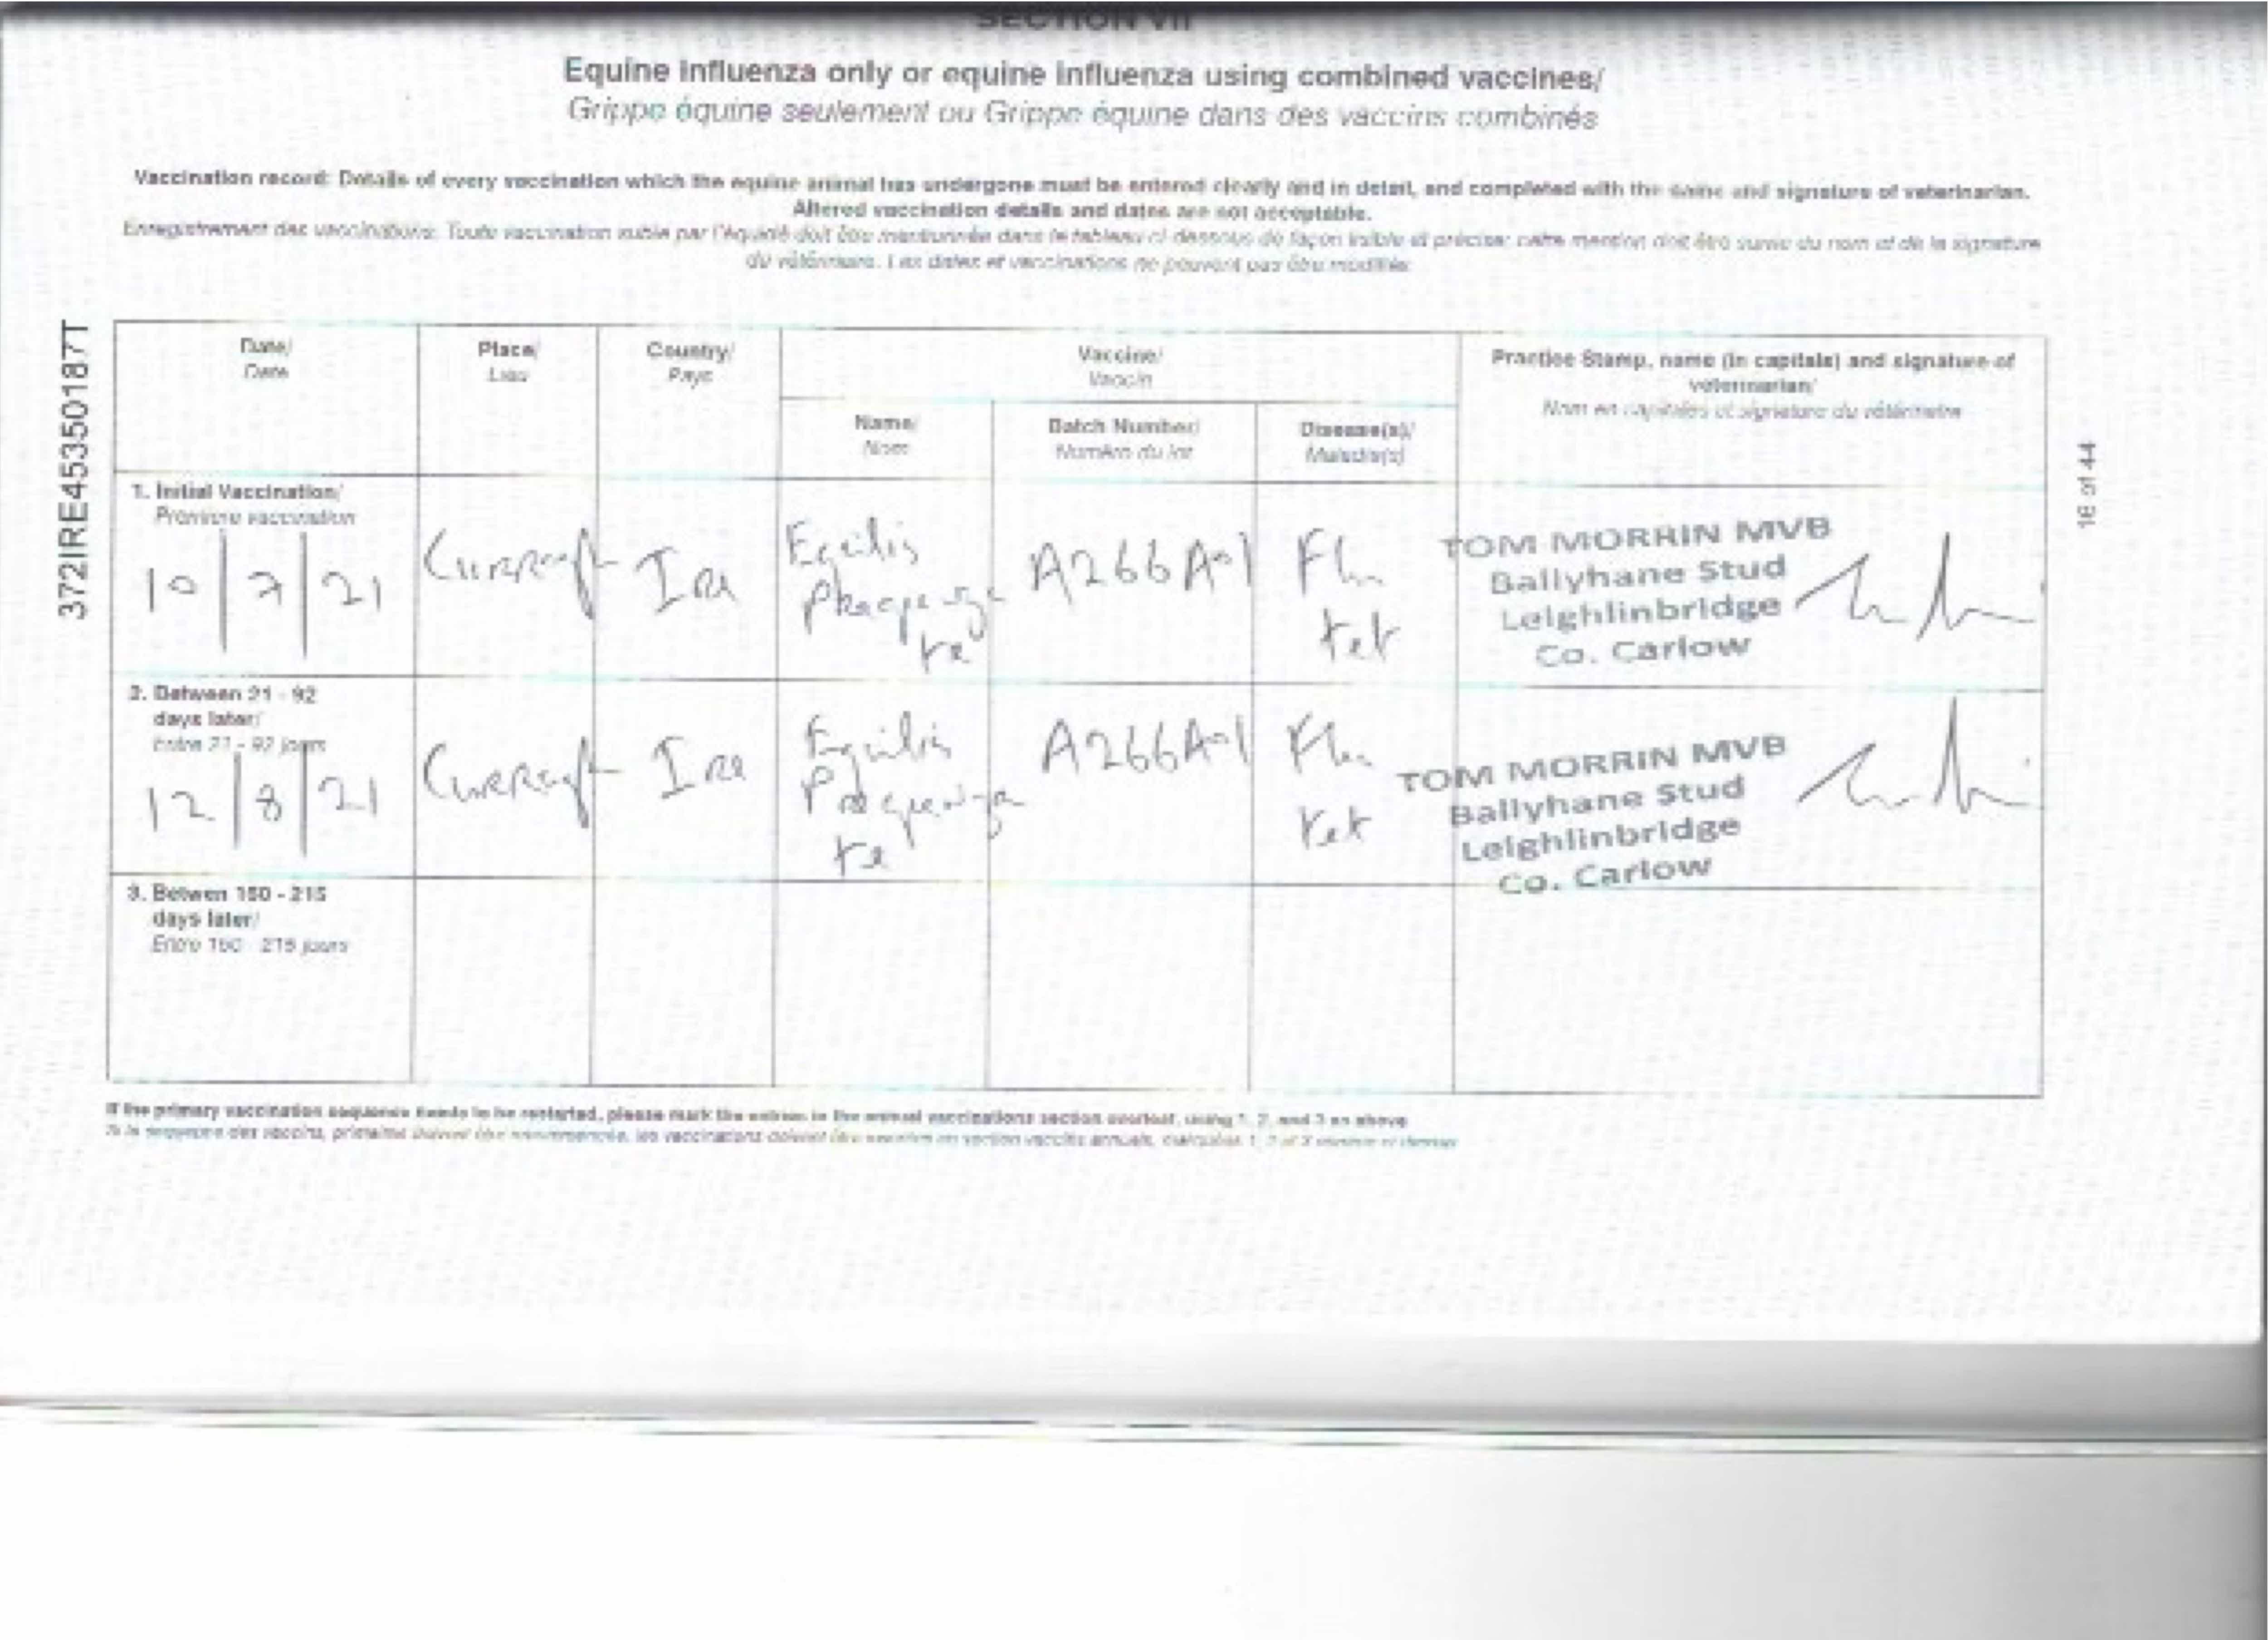 SECTION VII
Equine Influenza only or equine influenza using combined vaccines/
Grippe équine seulement ou Grippe équine dans des vaccins combinés
Vaccination record: Details of every vaccination which the equine animal has undergone must be entered clearly and in detail, and completed with the name and signature of veterinarian.
Altered vaccination details and dates are not acceptable.
Enregistrement des vaccinations: Toute vaccination subie par l'équidé doit être mentionnée dans le tableau ci-dessous de façon lisible et précise: cette mention doit être suivie du nom et de la signature
du vétérinaire. Les dates et vaccinations ne peuvent pas être modifiés
372IRE45350187T
16 of 44
Date/
Date
Place/
Lieu
Country/
Pays
Vaccine/
Vaccin
Practice Stamp, name (in capitals) and signature of
veterinarian/
Nom en capitales et signature du vétérinaire
Name/
Nom
Batch Number/
Numéro du lot
Disease(s)/
Maladie(s)
1. Initial Vaccination/
Première vaccination
10/7/21
Curragh
Ire
Equilis
te
A266A01
Flu
tet
TOM MORRIN MVB
Ballyhane Stud
Leighlinbridge
Co. Carlow
2. Between 21 - 92
days later/
Entre 21 - 92 jours
12/8/21
Curragh
Ire
Equilis
Prequenza
te
A266A01
Flu
tet
TOM MORRIN MVB
Ballyhane Stud
Leighlinbridge
Co. Carlow
3. Betwen 150 - 215
days later/
Entre 150 - 215 jours
If the primary vaccination sequence needs to be restarted, please mark the entries in the annual vaccinations section overleaf, using 1, 2, and 3 as above